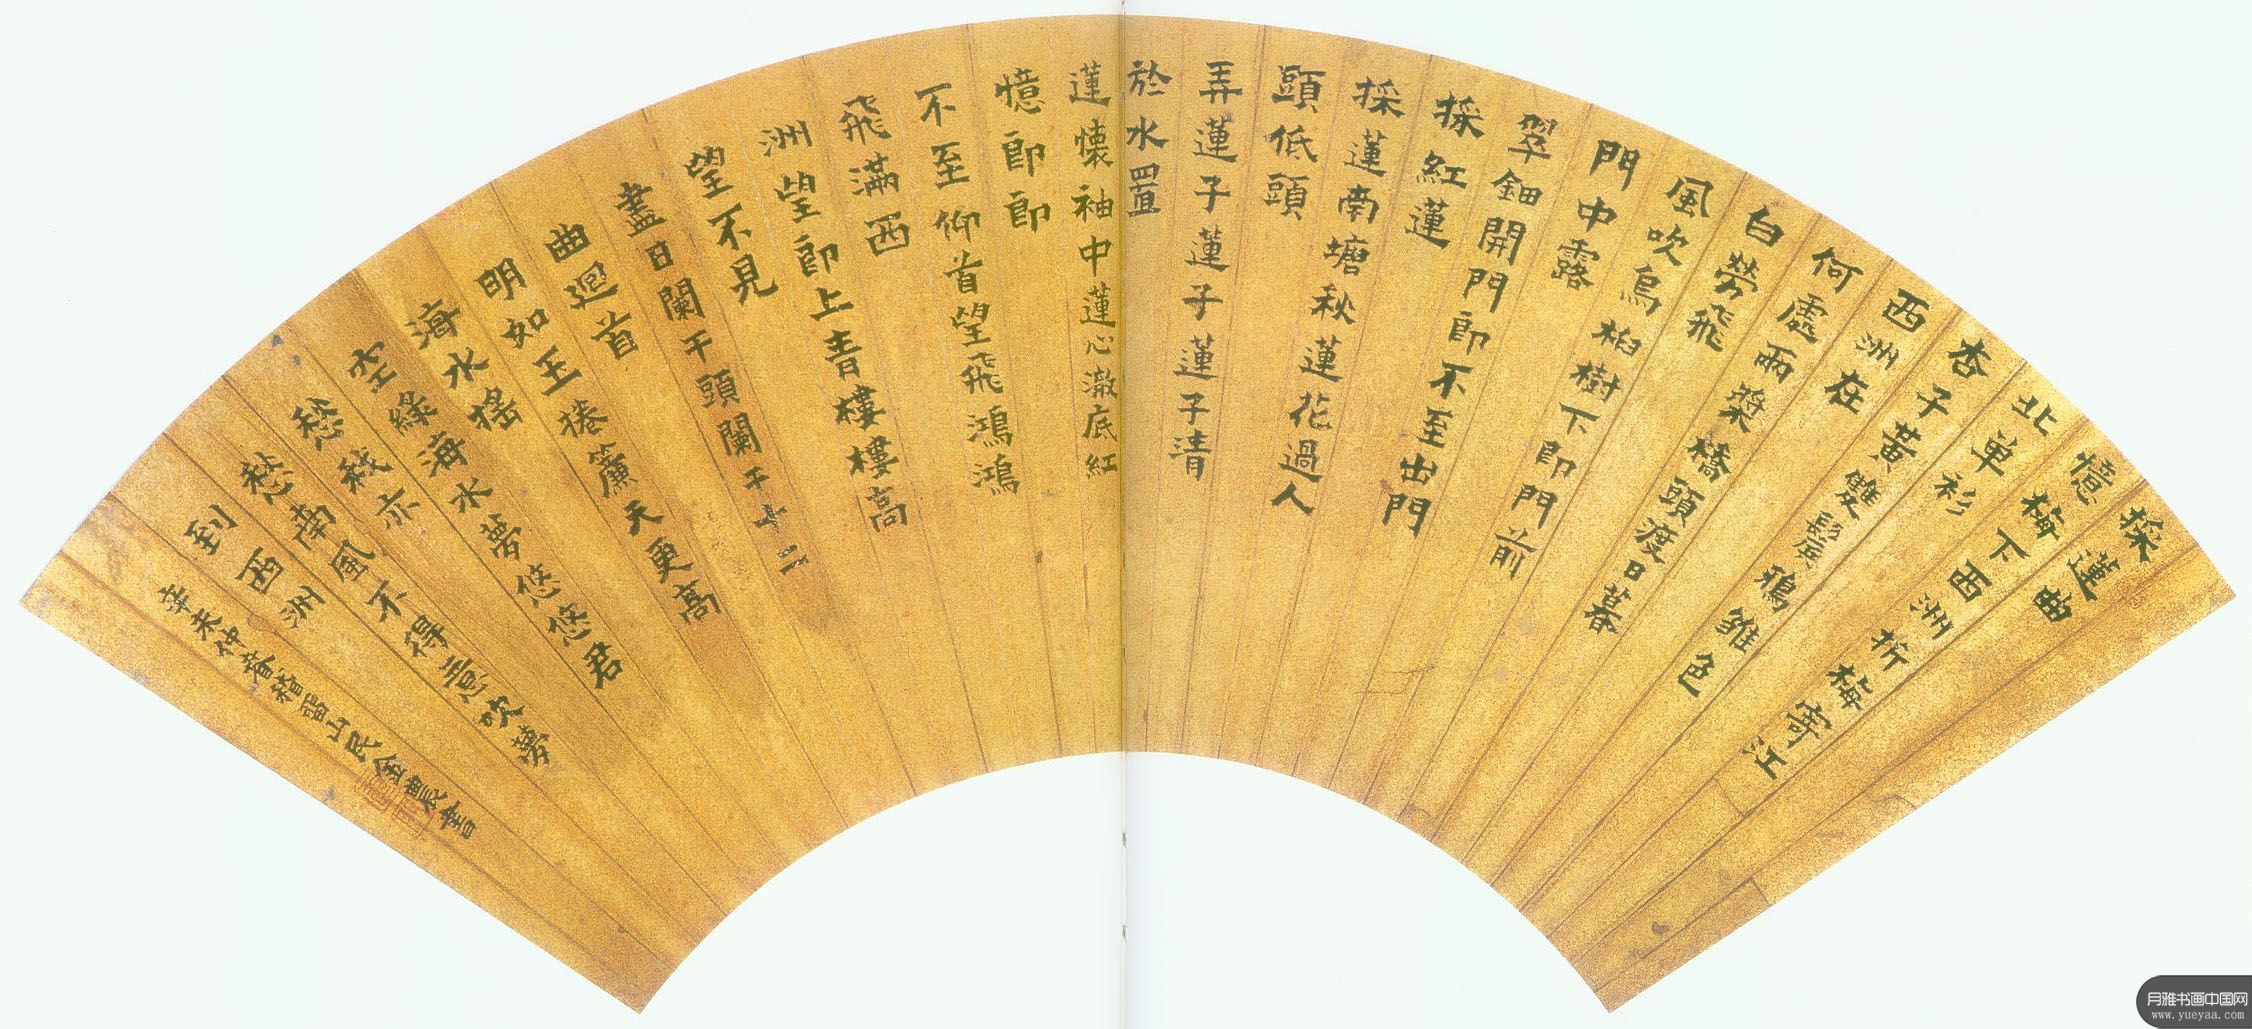 採蓮曲
憶梅下西洲折梅寄江
北单衫
杏子黃雙鬟鴉雛色
西洲在
何處兩槳橋頭渡日暮
白勞飛
風吹烏桕樹下郎門前
門中露
翠鈿開門郎不至出門
採紅蓮
採蓮南塘秋蓮花過人
頭低頭
弄蓮子蓮子蓮子清
於水置
蓮懷袖中蓮心澈底紅
憶郎郎
不至仰首望飛鴻鴻
飛滿西
洲望郎上青樓樓高
望不見
盡日闌干頭闌干十二
曲迴首
明如玉捲簾天更高
海水搖
空綠海水夢悠悠君
愁我亦
愁南風不得意吹夢
到西洲
辛未仲春稽留山民金農書
月雅书画中国网
www.yueyaa.com